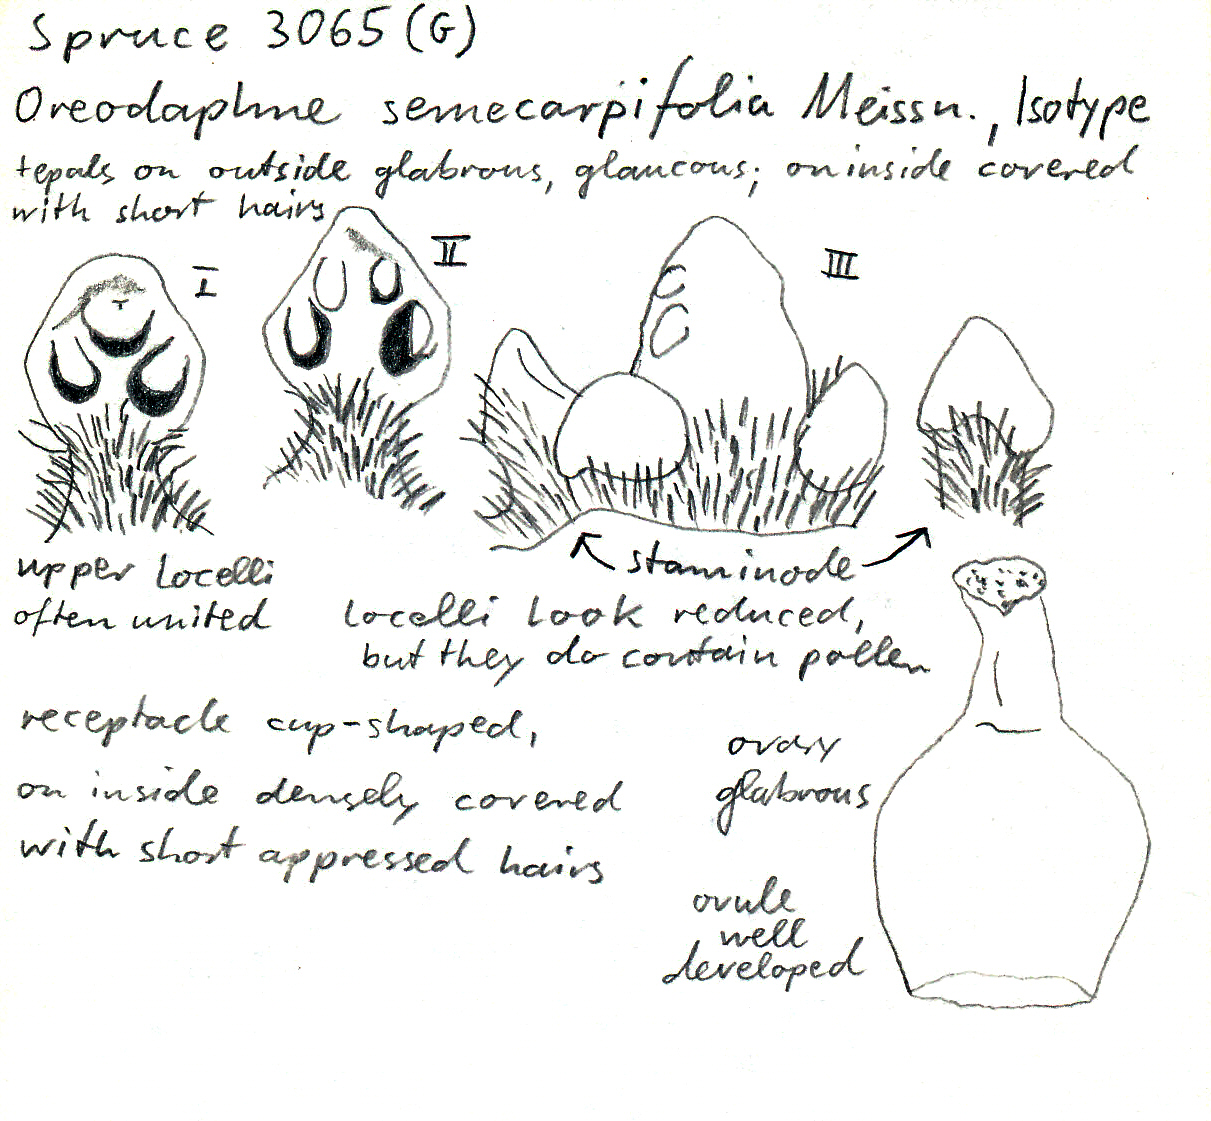 Spruce 3065 (G)
Oreodaphne semecarpifolia Meissn., Isotype
tepals on outside glabrous, glaucous; on inside covered
with short hairs
I
II
III
staminode
upper locelli
often united
locelli look reduced,
but they do contain pollen
receptacle cup-shaped,
on inside densely covered
with short appressed hairs
ovary
glabrous
ovule
well
developed